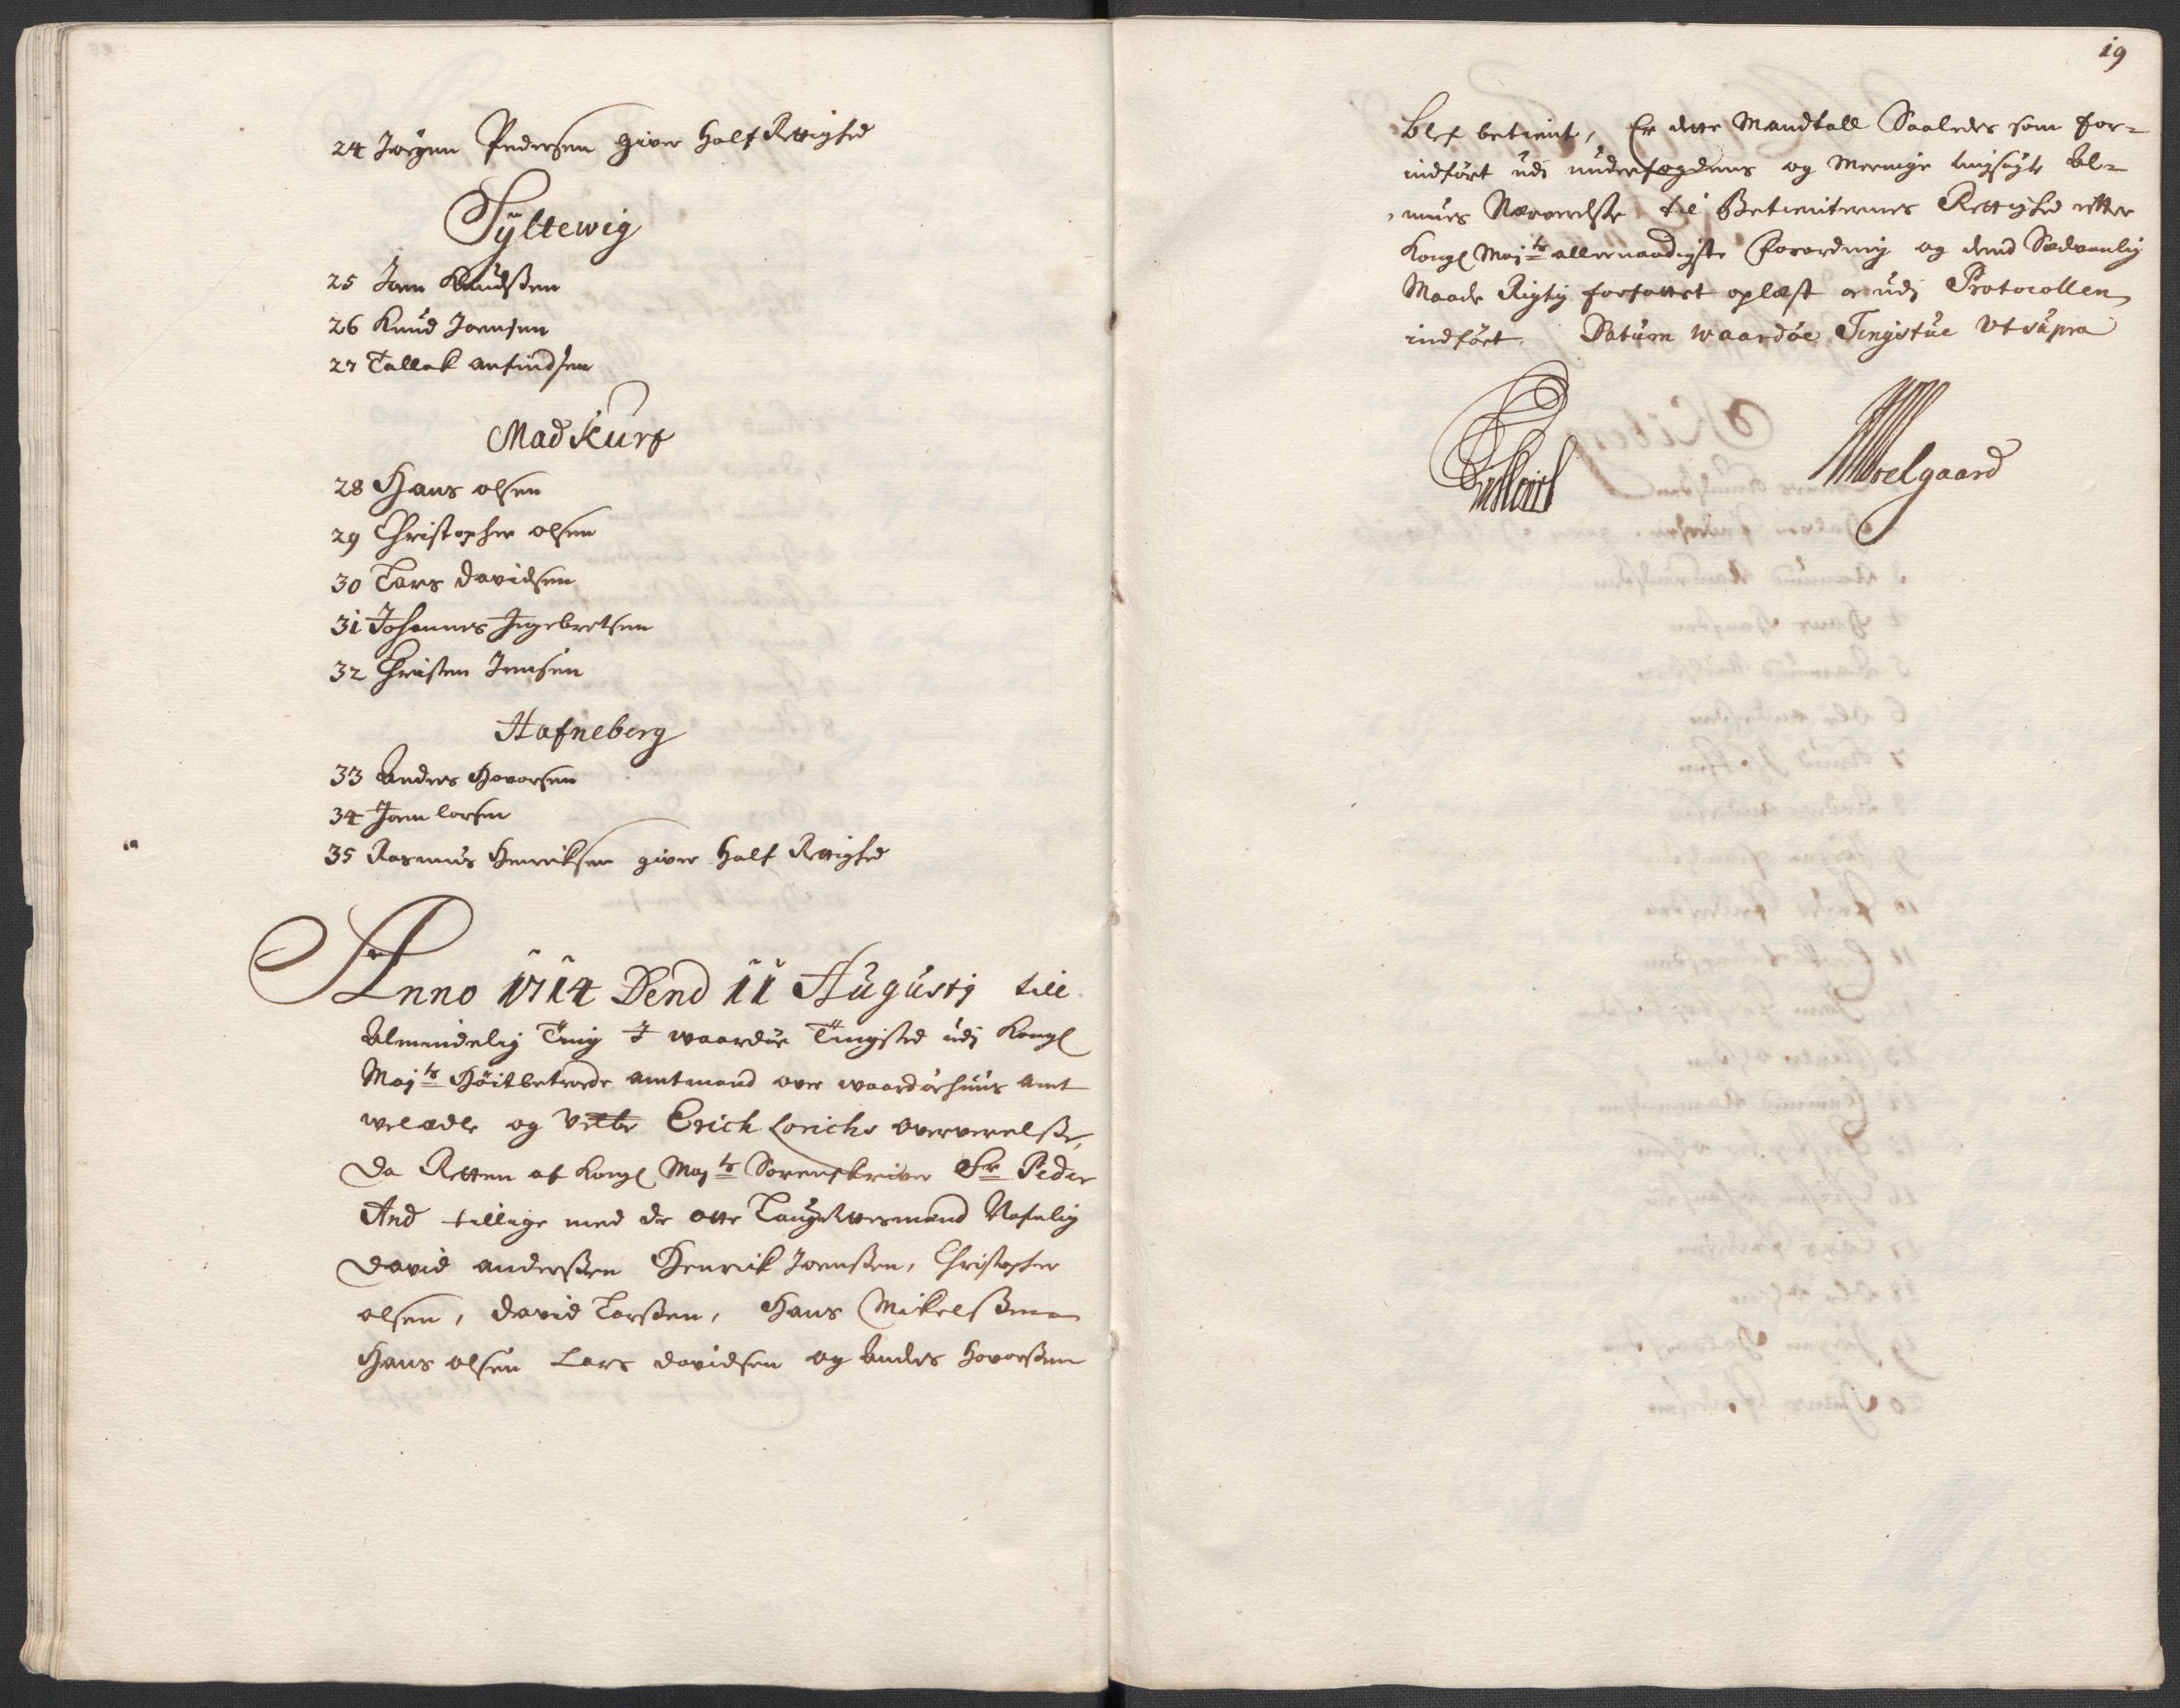 24 Jørgen Pedersen giver half Rettighed
Syltewig
25 Joen Knudssen
26 Knud Joensen
27 Tallak anfindsen
Madkurf
28 Hans olsen
29 Christopher olsen
30 Lars Davidsen
31 Johannes Ingebretsen
32 Christen Jensen
Hafneberg
33 Anders Hovorsen
34 Joen larsen
35 Rasmus Henriksen giver half Rettighed
Anno 1714 Dend 11 Augustj till
Almindelig Ting I waardøe Tingsted udj Kongl
Maj:ts Høitbetroede amtmand over waardøehuus amt
weledle og Erich Lorichs oververelsse,
da Retten af Kongl Maj:ts Sorenskriver Sr Peder
And tillige med de otte Laugrettesmænd Nafnlig
David anderssen Henrik Joenssen, Christopher
olsen, David Larssen, Hans Mikelssen
Hans olsen Lars davidsen og Anders hovorssen
19
blef betient, Er dette Mandtall Saaledes som for-
indført udj underfogdens og Meenige Al-
mues Nærverelsse til Betienternes Rettighed efter
Kongl Maj:ts allernaadigste Forordning og dend Sædvanlig
Maade Rigtig forfattet oplæst og udj Protocollen
indført. Datum waardøe Tingstue Ut supra